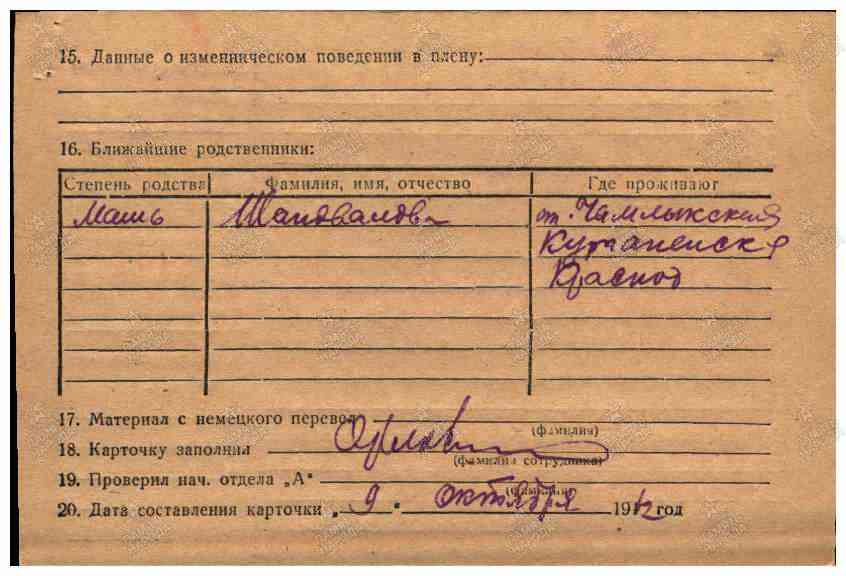 15. Данные о изменническом поведении в плену:
16. Ближайшие родственники:
Степень родства Фамилия, имя, отчество Где проживают
Мать Шаповалова ст. Чамлыкская
Краснод
17. Материал с немецкого перевел
(фамилия)
18. Карточку заполнил
(фамилия сотрудника)
19. Проверил нач. отдела „А"
(фамилия)
20. Дата составления карточки „ 9 " октября 19 год